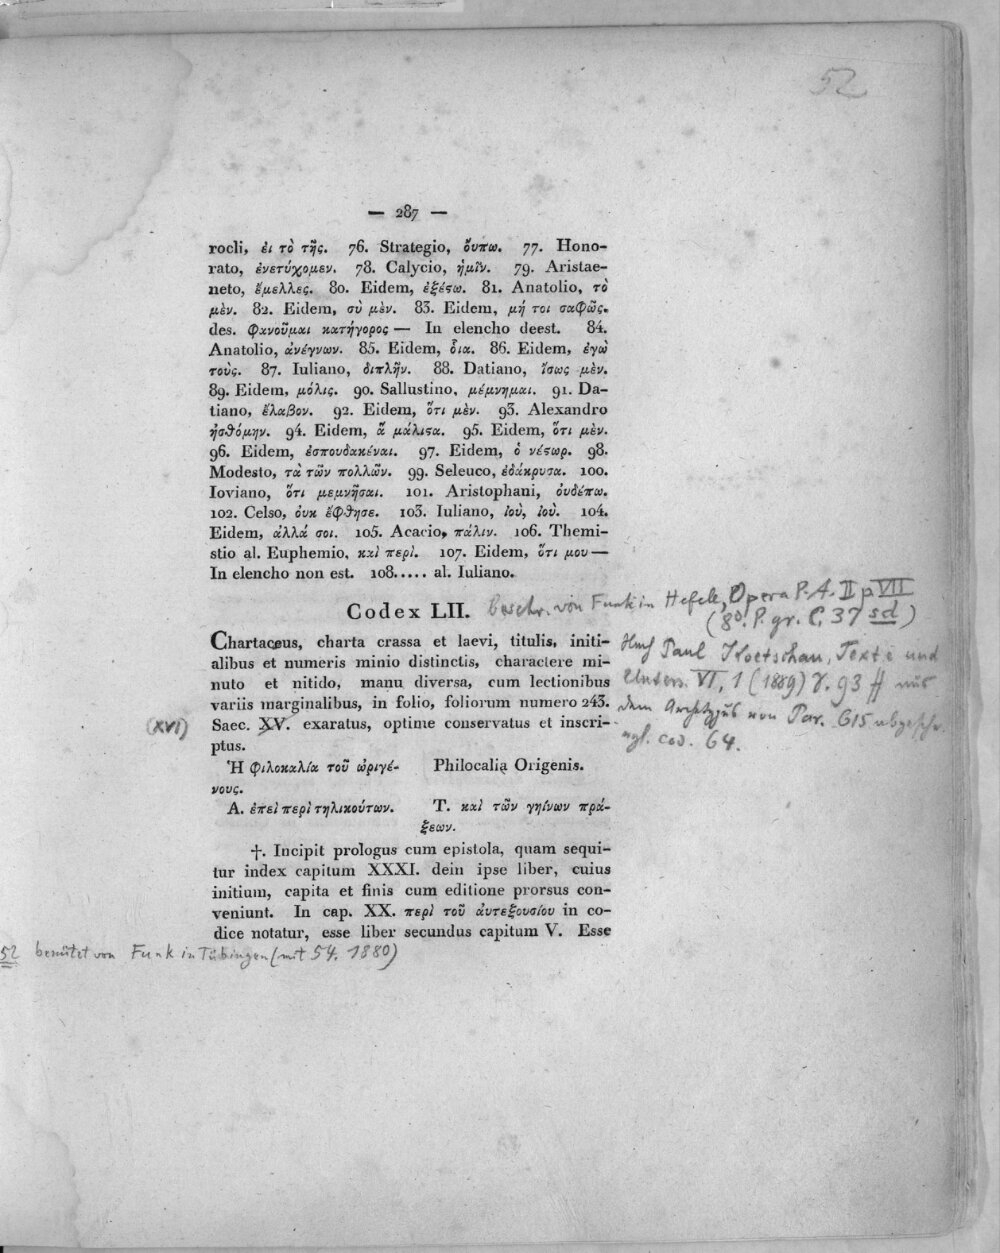 52
— 287 —
rocli, ἐι τὸ τῆς. 76. Strategio, ὄυπω. 77. Hono-
rato, ἐνετύχομεν. 78. Calycio, ἡμῖν. 79. Aristae-
neto, ἔμελλες. 80. Eidem, ἐξέϛω. 81. Anatolio, τὸ
μὲν. 82. Eidem, σὺ μὲν. 83. Eidem, μή τοι σαφῶς.
des. φανοῦμαι κατήγορος — In elencho deest. 84.
Anatolio, ἀνέγνων. 85. Eidem, ὅια. 86. Eidem, ἐγὼ
τοὺς. 87. Iuliano, διπλῆν. 88. Datiano, ἴσως μὲν.
89. Eidem, μόλις. 90. Sallustino, μέμνημαι. 91. Da-
tiano, ἔλαβον. 92. Eidem, ὅτι μὲν. 93. Alexandro
ᾐσθόμην. 94. Eidem, ἃ μάλιϛα. 95. Eidem, ὅτι μὲν.
96. Eidem, ἐσπουδακέναι. 97. Eidem, ὁ νέϛωρ. 98.
Modesto, τὰ τῶν πολλῶν. 99. Seleuco, ἐδάκρυσα. 100.
Ioviano, ὅτι μεμνῆσαι. 101. Aristophani, ὀυδέπω.
102. Celso, ὀυκ ἔφθησε. 103. Iuliano, ἰοὺ, ἰού. 104.
Eidem, ἀλλά σοι. 105. Acacio, πάλιν. 106. Themi-
stio al. Euphemio, καὶ περὶ. 107. Eidem, ὅτι μου —
In elencho non est. 108..... al. Iuliano.
Codex LII. beschr. von Funk in Hefele, Opera P. A. II p VII
(8°. P. gr. C, 37 sd)
Chartaceus, charta crassa et laevi, titulis, initi-
alibus et numeris minio distinctis, charactere mi-
nuto et nitido, manu diversa, cum lectionibus
variis marginalibus, in folio, foliorum numero 243.
(XVI) Saec. XV. exaratus, optime conservatus et inscri-
ptus.
Paul Koetschau, Texte und
Unters. VI, 1 (1889) 93 ff aus
dem Archetypus von Par. 615 abgeschr.
vgl. cod. 64.
Ἡ Φιλοκαλία τοῦ ὠριγέ- Philocalia Origenis.
νους.
Α. ἐπεὶ περὶ τηλικούτων. Τ. καὶ τῶν γηίνων πρά-
ξεων.
†. Incipit prologus cum epistola, quam sequi-
tur index capitum XXXI. dein ipse liber, cuius
initium, capita et finis cum editione prorsus con-
veniunt. In cap. XX. περὶ τοῦ ἀυτεξουσίου in co-
dice notatur, esse liber secundus capitum V. Esse
52 benützt von Funk in Tübingen (mit 54. 1880)